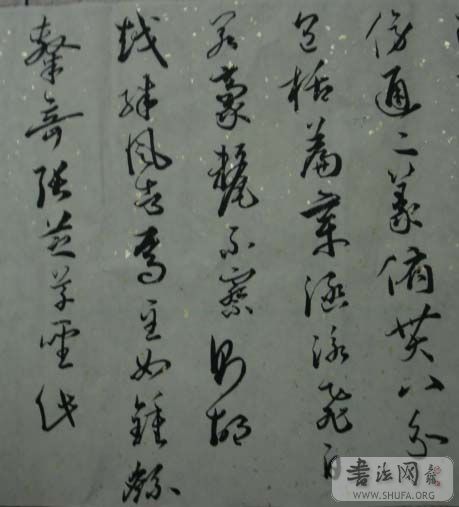 傍通二篆俯貫八分
包括篇章涵泳飛白
若毫釐不察則胡
越殊風者焉至如鍾繇
隸奇張芝草聖此
書法网
WWW.SHUFA.ORG